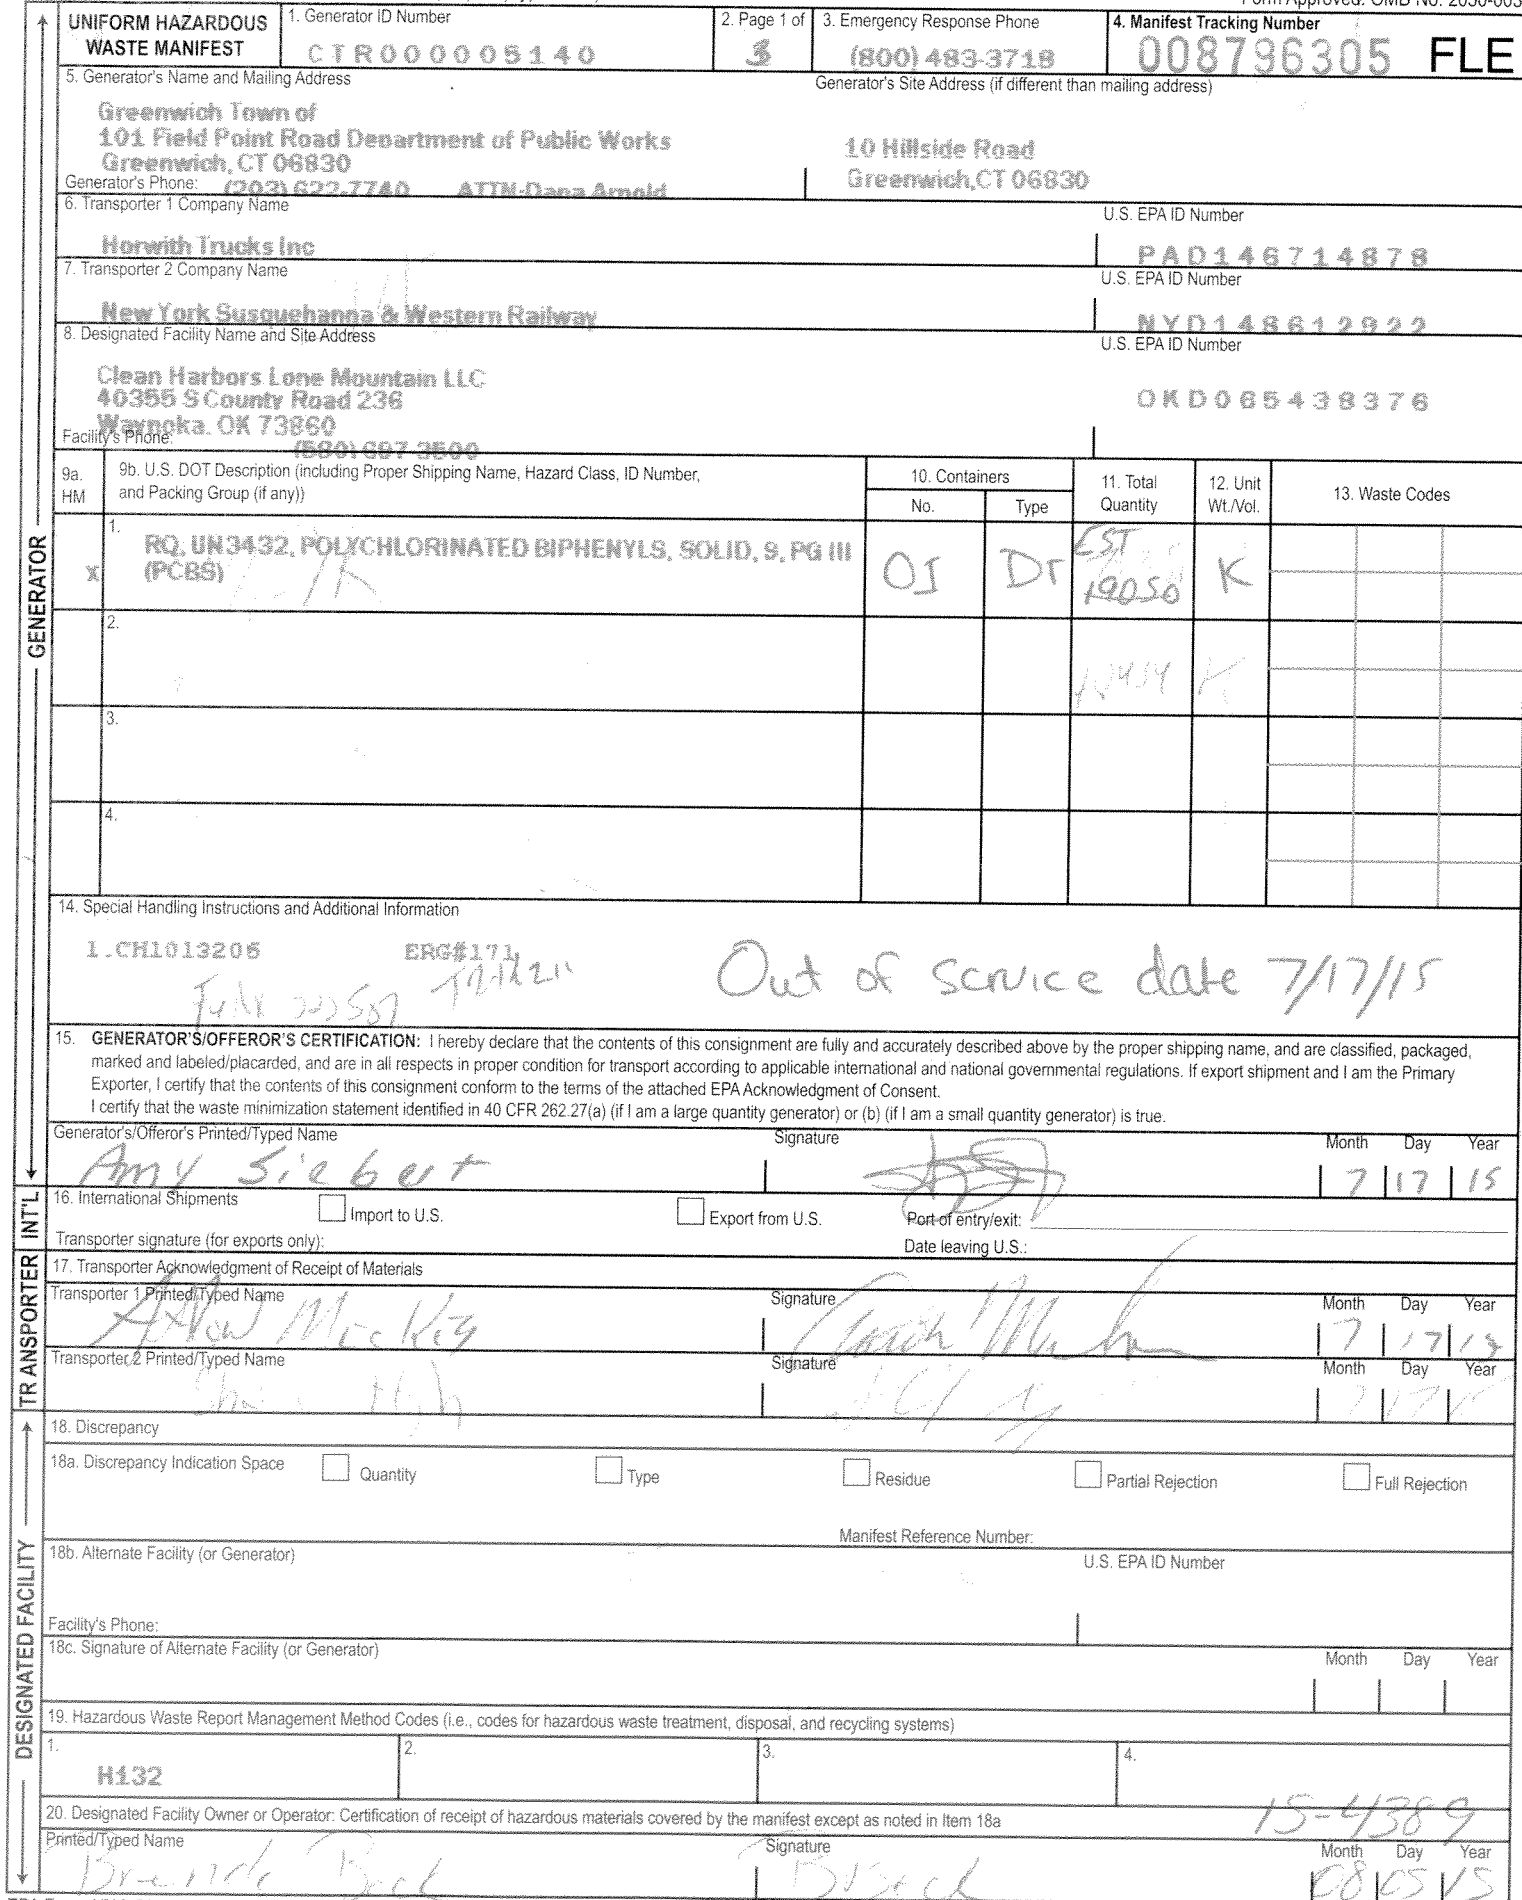 UNIFORM HAZARDOUS WASTE MANIFEST
1. Generator ID Number
CTR000005140
2. Page 1 of
3. Emergency Response Phone
(800) 483-3718
4. Manifest Tracking Number
008796305 FLE
5. Generator's Name and Mailing Address
Generator's Site Address (if different than mailing address)
Greenwich Town of
101 Field Point Road Department of Public Works
Greenwich, CT 06830
10 Hillside Road
Greenwich,CT 06830
Generator's Phone: (203) 622-7740 ATTN-Dana Arnold
6. Transporter 1 Company Name
U.S. EPA ID Number
Horwith Trucks Inc
PAD146714878
7. Transporter 2 Company Name
U.S. EPA ID Number
New York Susquehanna & Western Railway
NYD148612922
8. Designated Facility Name and Site Address
U.S. EPA ID Number
Clean Harbors Lone Mountain LLC
40355 S County Road 236
Waynoka. OK 73860
OKD065438376
Facility's Phone: (580) 697-3500
9a. HM
9b. U.S. DOT Description (including Proper Shipping Name, Hazard Class, ID Number, and Packing Group (if any))
10. Containers
No.
Type
11. Total Quantity
12. Unit Wt./Vol.
13. Waste Codes
1.
X
RQ, UN3432, POLYCHLORINATED BIPHENYLS, SOLID, 9, PG III
(PCBS)
01
DT
EST
19050
K
2.
K
3.
4.
14. Special Handling Instructions and Additional Information
1.CH1013206 ERG#171
Out of service date 7/17/15
15. GENERATOR'S/OFFEROR'S CERTIFICATION: I hereby declare that the contents of this consignment are fully and accurately described above by the proper shipping name, and are classified, packaged,
marked and labeled/placarded, and are in all respects in proper condition for transport according to applicable international and national governmental regulations. If export shipment and I am the Primary
Exporter, I certify that the contents of this consignment conform to the terms of the attached EPA Acknowledgment of Consent.
I certify that the waste minimization statement identified in 40 CFR 262.27(a) (if I am a large quantity generator) or (b) (if I am a small quantity generator) is true.
Generator's/Offeror's Printed/Typed Name
Signature
Month Day Year
Amy Siebert
7 17 15
16. International Shipments
Import to U.S.
Export from U.S.
Port of entry/exit:
Transporter signature (for exports only):
Date leaving U.S.:
17. Transporter Acknowledgment of Receipt of Materials
Transporter 1 Printed/Typed Name
Signature
Month Day Year
7 17 15
Transporter 2 Printed/Typed Name
Signature
Month Day Year
18. Discrepancy
18a. Discrepancy Indication Space
Quantity
Type
Residue
Partial Rejection
Full Rejection
Manifest Reference Number:
18b. Alternate Facility (or Generator)
U.S. EPA ID Number
Facility's Phone:
18c. Signature of Alternate Facility (or Generator)
Month Day Year
19. Hazardous Waste Report Management Method Codes (i.e., codes for hazardous waste treatment, disposal, and recycling systems)
1.
H132
2.
3.
4.
20. Designated Facility Owner or Operator: Certification of receipt of hazardous materials covered by the manifest except as noted in Item 18a
15-4389
Printed/Typed Name
Signature
Month Day Year
08 05 15
GENERATOR
INT'L
TRANSPORTER
DESIGNATED FACILITY